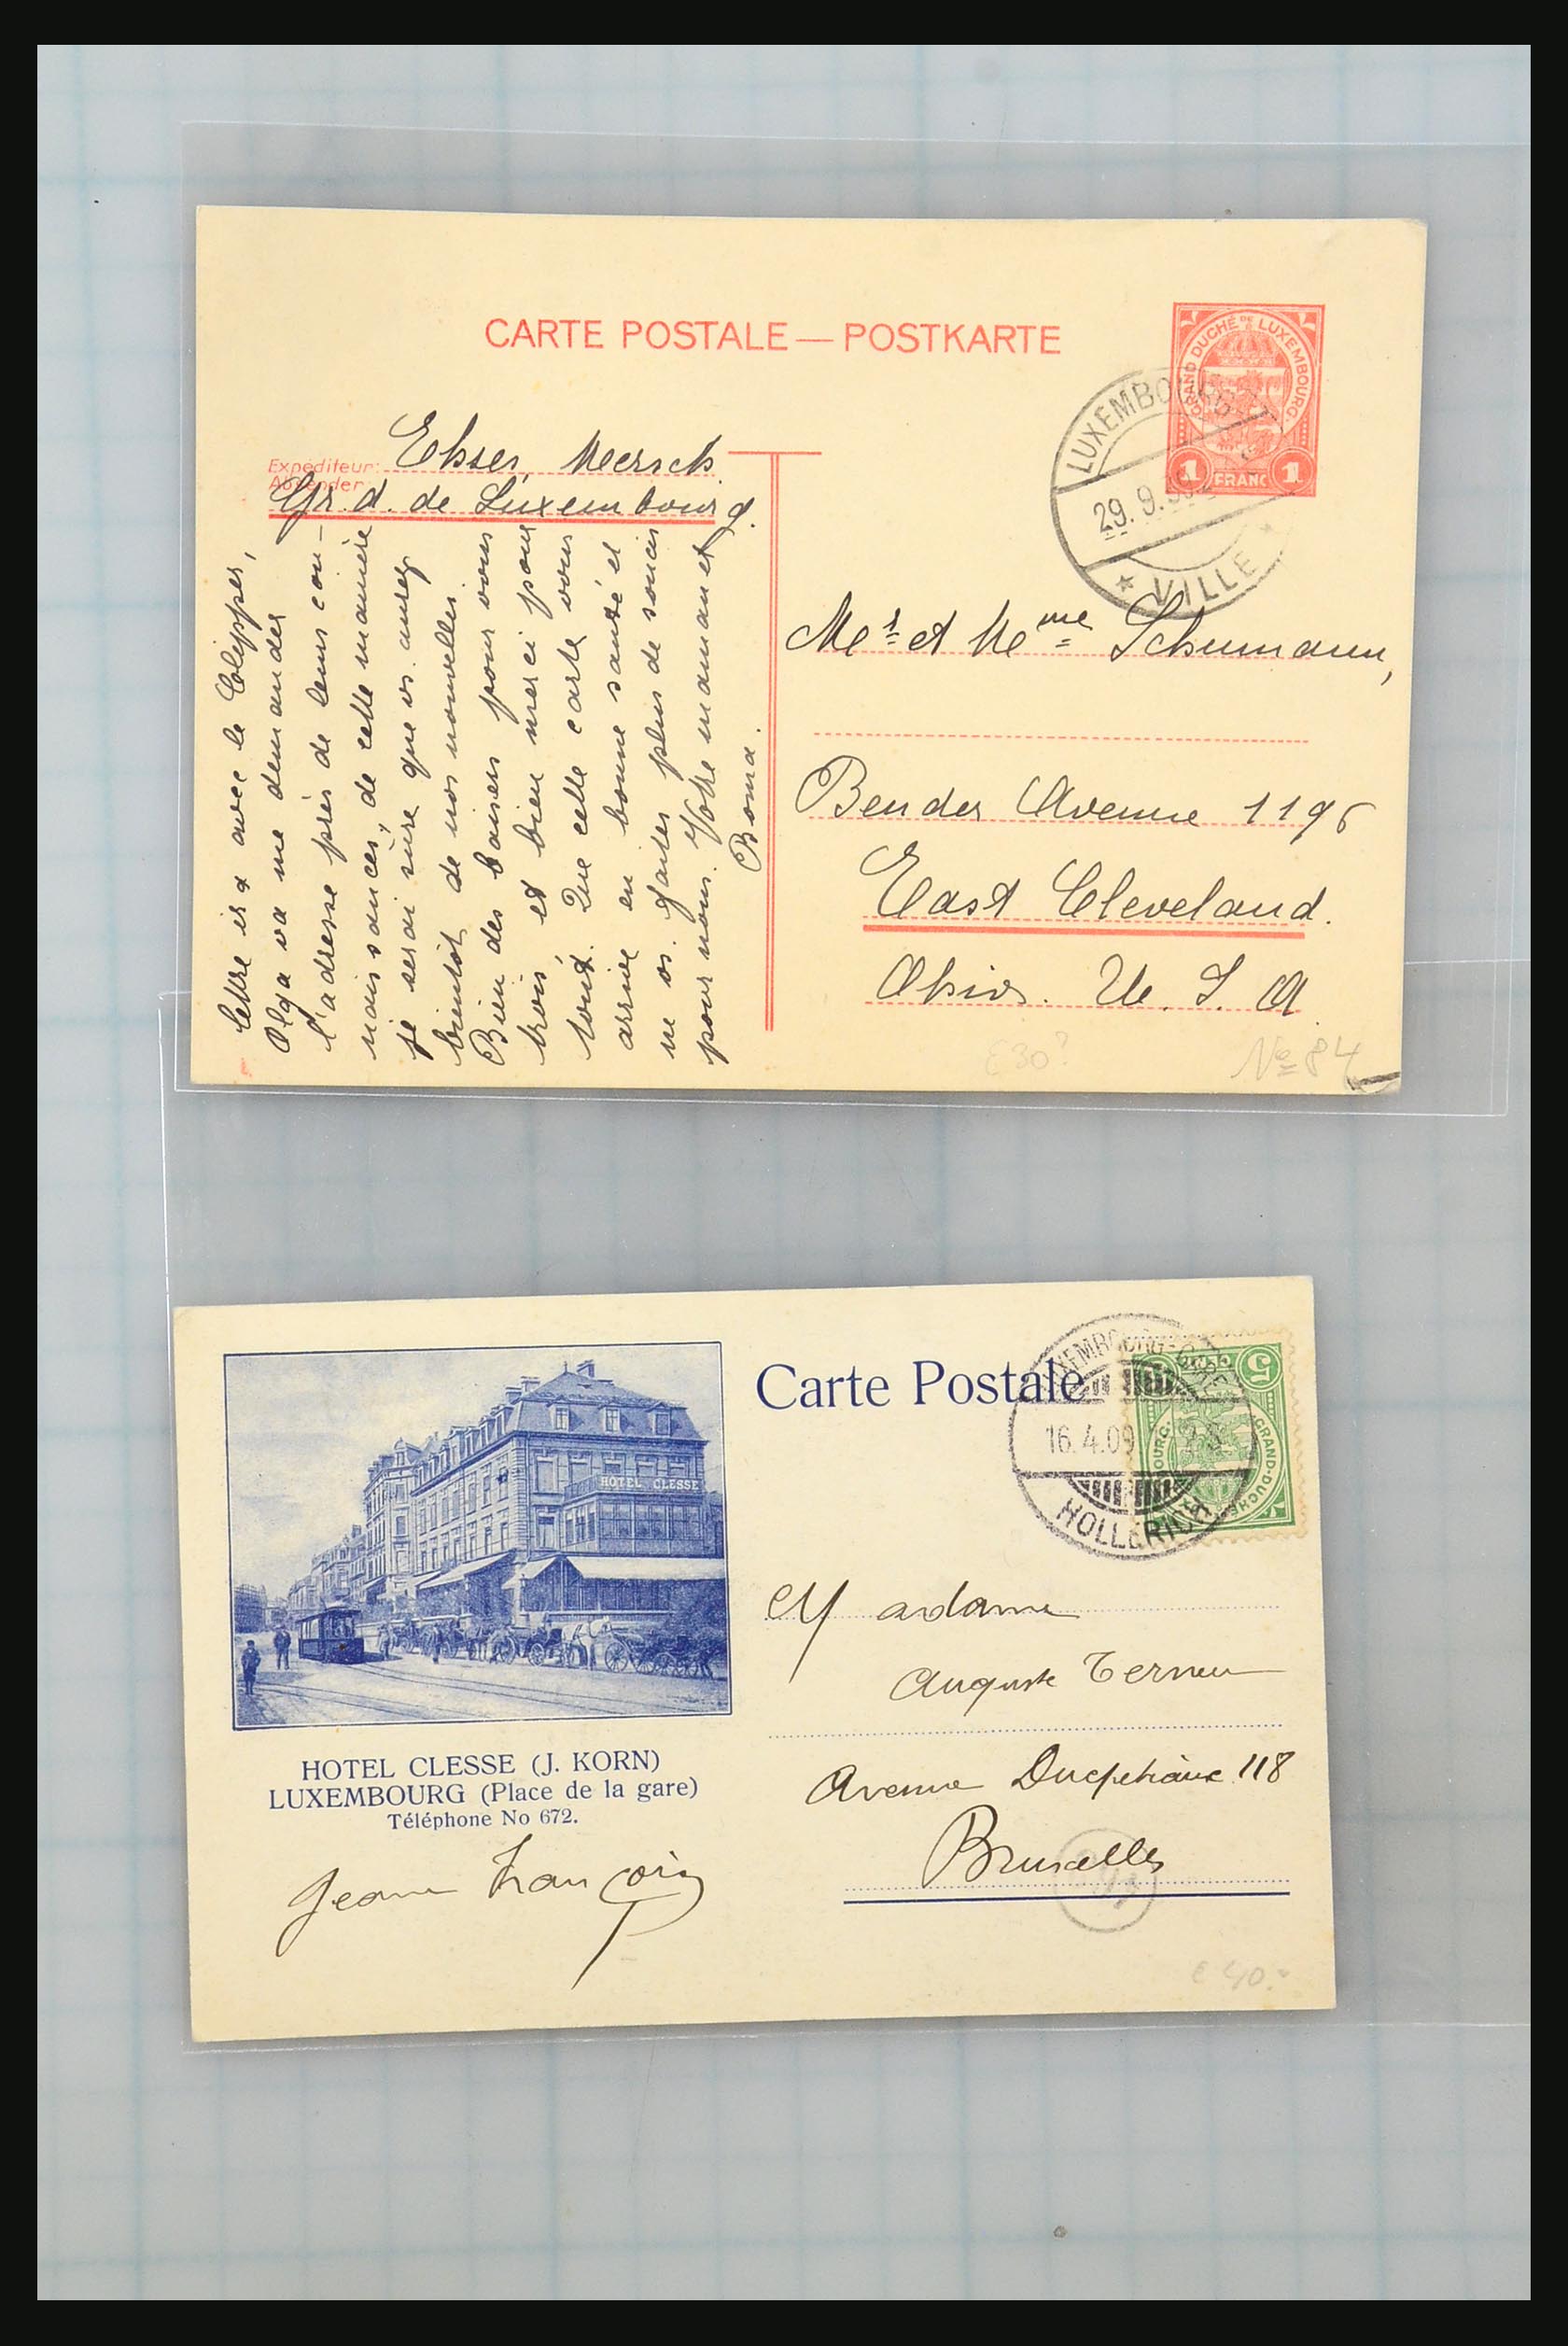 CARTE POSTALE — POSTKARTE
GRAND DUCHÉ DE LUXEMBOURG
1 FRANC 1
LUXEMBOURG
29. 9. 39
* VILLE *
Expéditeur:
Absender:
Elsser, Meersch
Gr. d. de Luxembourg.
lettre ira avec le Clipper,
Olga va me demander
l'adresse près de leurs con-
naissances, de cette manière
je serai sûre que vs. aurez
bientôt de nos nouvelles.
Bien des baisers pour vous
trois, et bien merci pour
tout. Que cette carte vous
arrive en bonne santé et
ne vs. faites plus de soucis
pour nous. Votre maman et
Boma.
Mr et Mme Schumann,
Bender Avenue 1196
East Cleveland.
Ohio. U. S. A.
€ 30?
No 84
Carte Postale
LUXEMBOURG-GARE
16. 4. 09
HOLLERICH
5
GRAND-DUCHÉ
HOTEL CLESSE
HOTEL CLESSE (J. KORN)
LUXEMBOURG (Place de la gare)
Téléphone No 672.
Jeanne Françoise
Madame
Auguste
Avenue Ducpétiaux 118
Bruxelles
€ 40.-